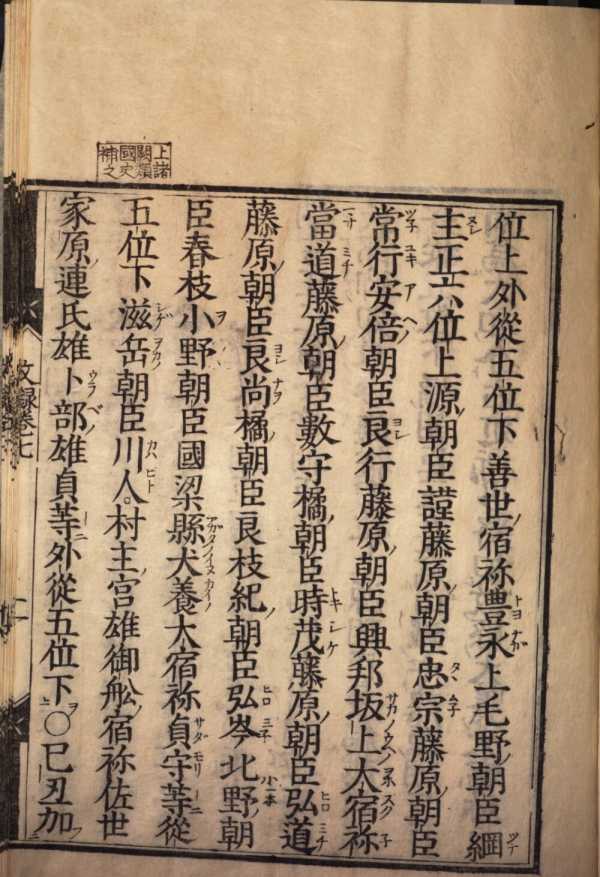 上諸
闕類
國史
補之
位上外從五位下善世宿祢豊永上毛野朝臣綱
主正六位上源朝臣謹藤原朝臣忠宗藤原朝臣
常行安倍朝臣良行藤原朝臣興邦坂上大宿祢
當道藤原朝臣數守橘朝臣時茂藤原朝臣弘道
藤原朝臣良尚橘朝臣良枝紀朝臣弘岑北野朝
臣春枝小野朝臣國梁縣犬養大宿祢貞守等從
五位下滋岳朝臣川人。村主宮雄御舩宿祢佐世
家原連氏雄卜部雄貞等外從五位下○巳丑加
文録卷七